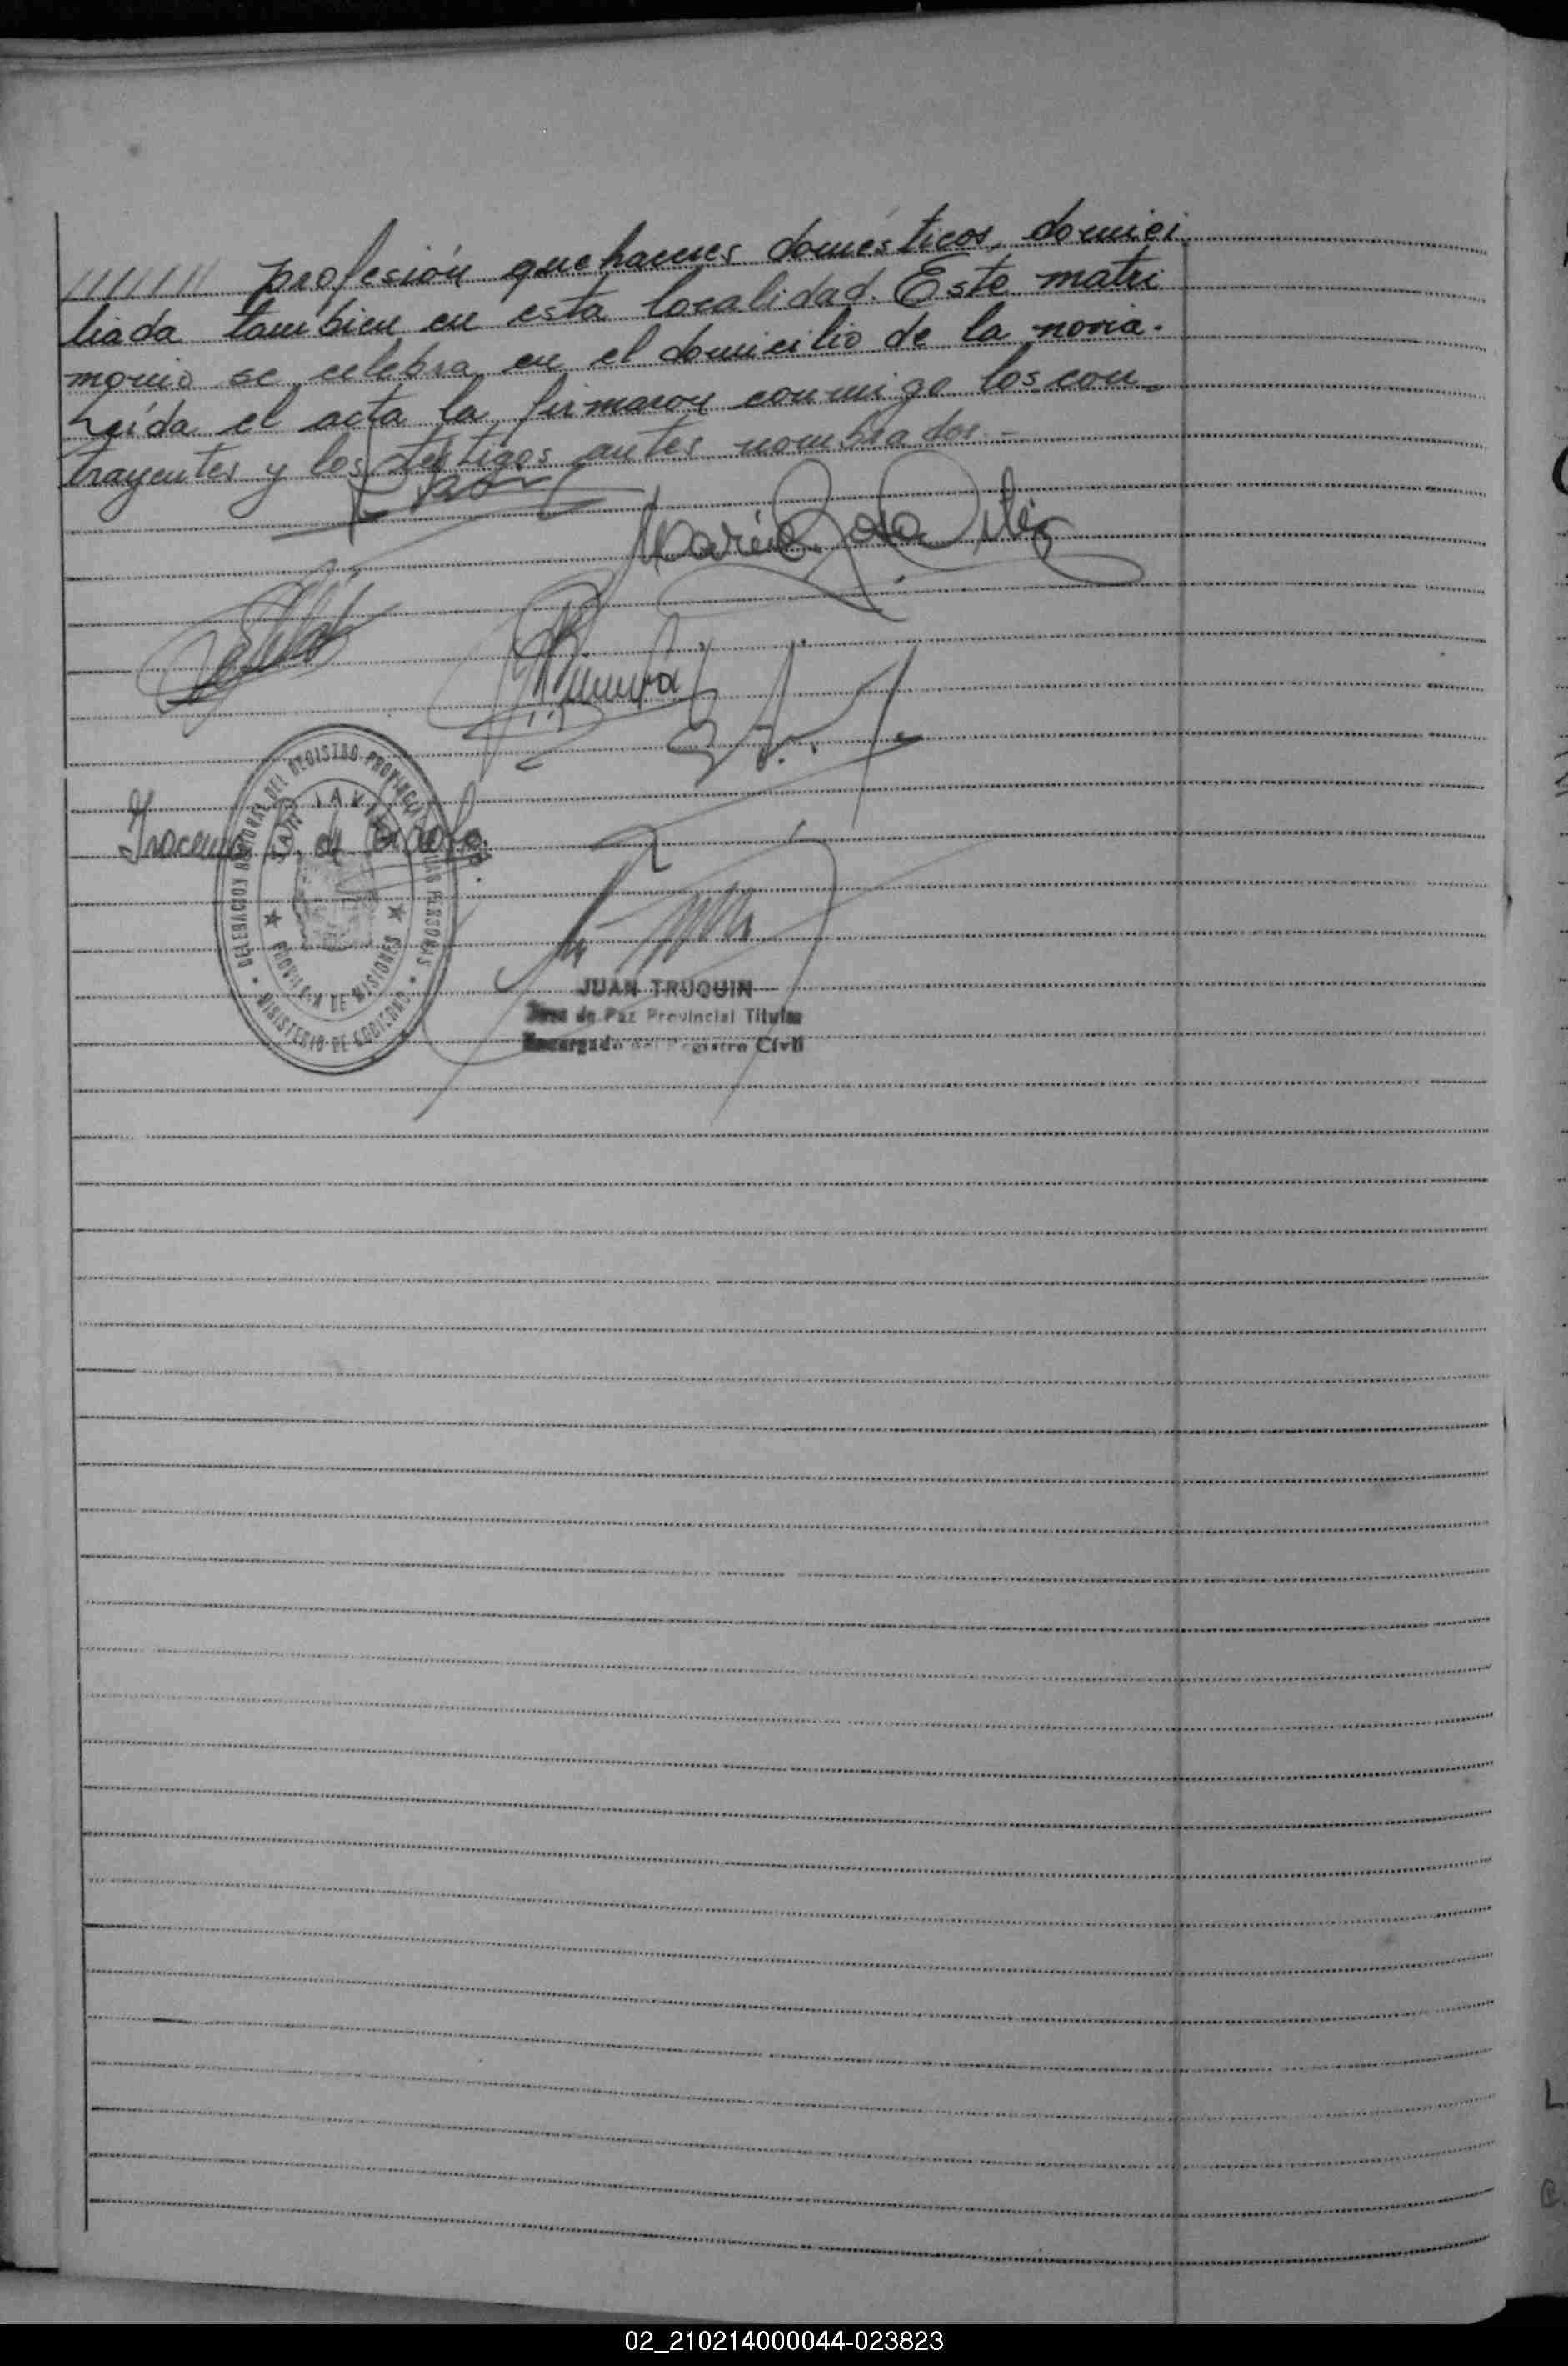 //////// profesión quehaceres domésticos, domici
liada tambien en esta localidad. Este matri
monio se celebra en el domicilio de la novia.
Leída el acta la firmaron conmigo los con-
trayentes y los testigos antes nombrados.-
María Rosa
Iracema B. de
DELEGACION REGIONAL DEL REGISTRO PROVINCIAL DE LAS PERSONAS
SAN JAVIER
PROVINCIA DE MISIONES
MINISTERIO DE GOBIERNO
JUAN TRUQUIN
Juez de Paz Provincial Titular
Encargado del Registro Civil
02_210214000044-023823